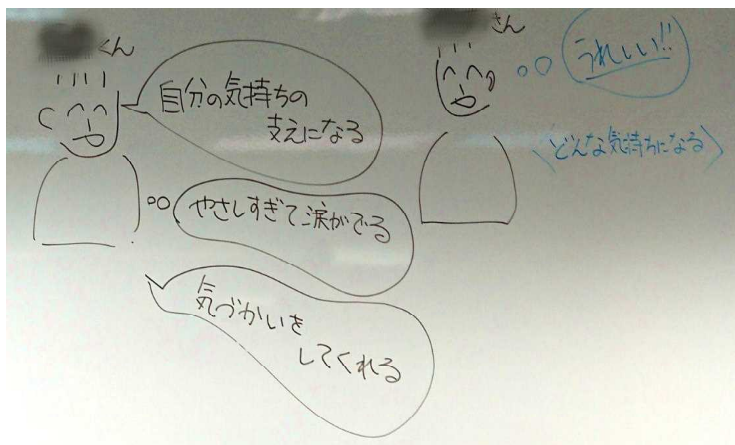 くん
自分の気持ちの
支えになる
やさしすぎて涙がでる
気づかいを
してくれる
さん
うれしい!!
どんな気持ちになる